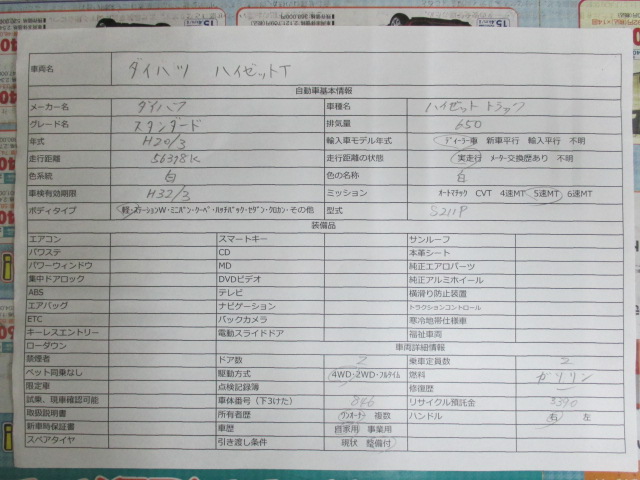 車両名 ダイハツ ハイゼットT
自動車基本情報
メーカー名 ダイハツ 車種名 ハイゼット トラック
グレード名 スタンダード 排気量 650
年式 H20/3 輸入車モデル年式 ディーラー車 新車平行 輸入平行 不明
走行距離 56378K 走行距離の状態 実走行 メーター交換歴あり 不明
色系統 白 色の名称 白
車検有効期限 H32/3 ミッション オートマチック CVT 4速MT 5速MT 6速MT
ボディタイプ 軽・ステーションW・ミニバン・クーペ・ハッチバック・セダン・クロカン・その他 型式 S211P
装備品
エアコン スマートキー サンルーフ
パワステ CD 本革シート
パワーウィンドウ MD 純正エアロパーツ
集中ドアロック DVDビデオ 純正アルミホイール
ABS テレビ 横滑り防止装置
エアバッグ ナビゲーション トラクションコントロール
ETC バックカメラ 寒冷地帯仕様車
キーレスエントリー 電動スライドドア 福祉車両
ローダウン 車両詳細情報
禁煙者 ドア数 2 乗車定員数 2
ペット同乗なし 駆動方式 4WD・2WD・フルタイム 燃料 ガソリン
限定車 点検記録簿 修復歴
試乗、現車確認可能 車体番号(下3けた) 846 リサイクル預託金
取扱説明書 所有者歴 ワンオーナー 複数 ハンドル 右 左
新車時保証書 車歴 自家用 事業用
スペアタイヤ 引き渡し条件 現状 整備付